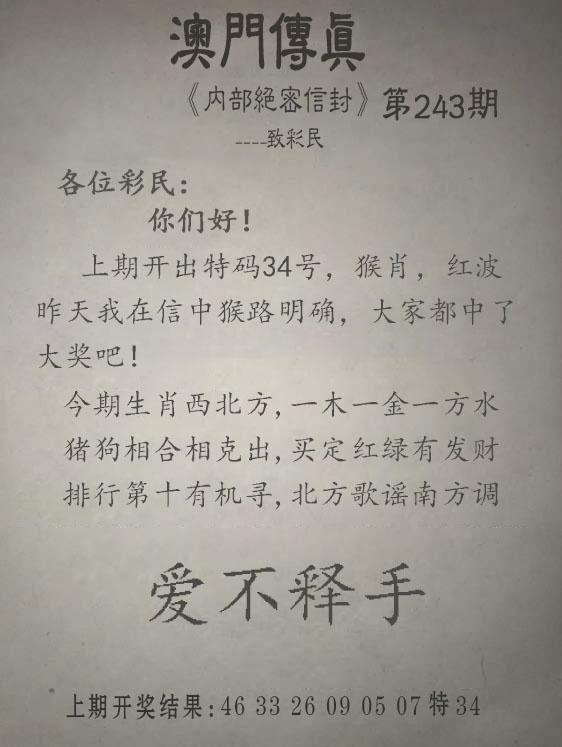 澳門傳眞
《内部絕密信封》第243期
----致彩民
各位彩民：
你们好！
上期开出特码34号，猴肖，红波
昨天我在信中猴路明确，大家都中了
大奖吧！
今期生肖西北方,一木一金一方水
猪狗相合相克出,买定红绿有发财
排行第十有机寻,北方歌谣南方调
爱不释手
上期开奖结果:46 33 26 09 05 07 特 34